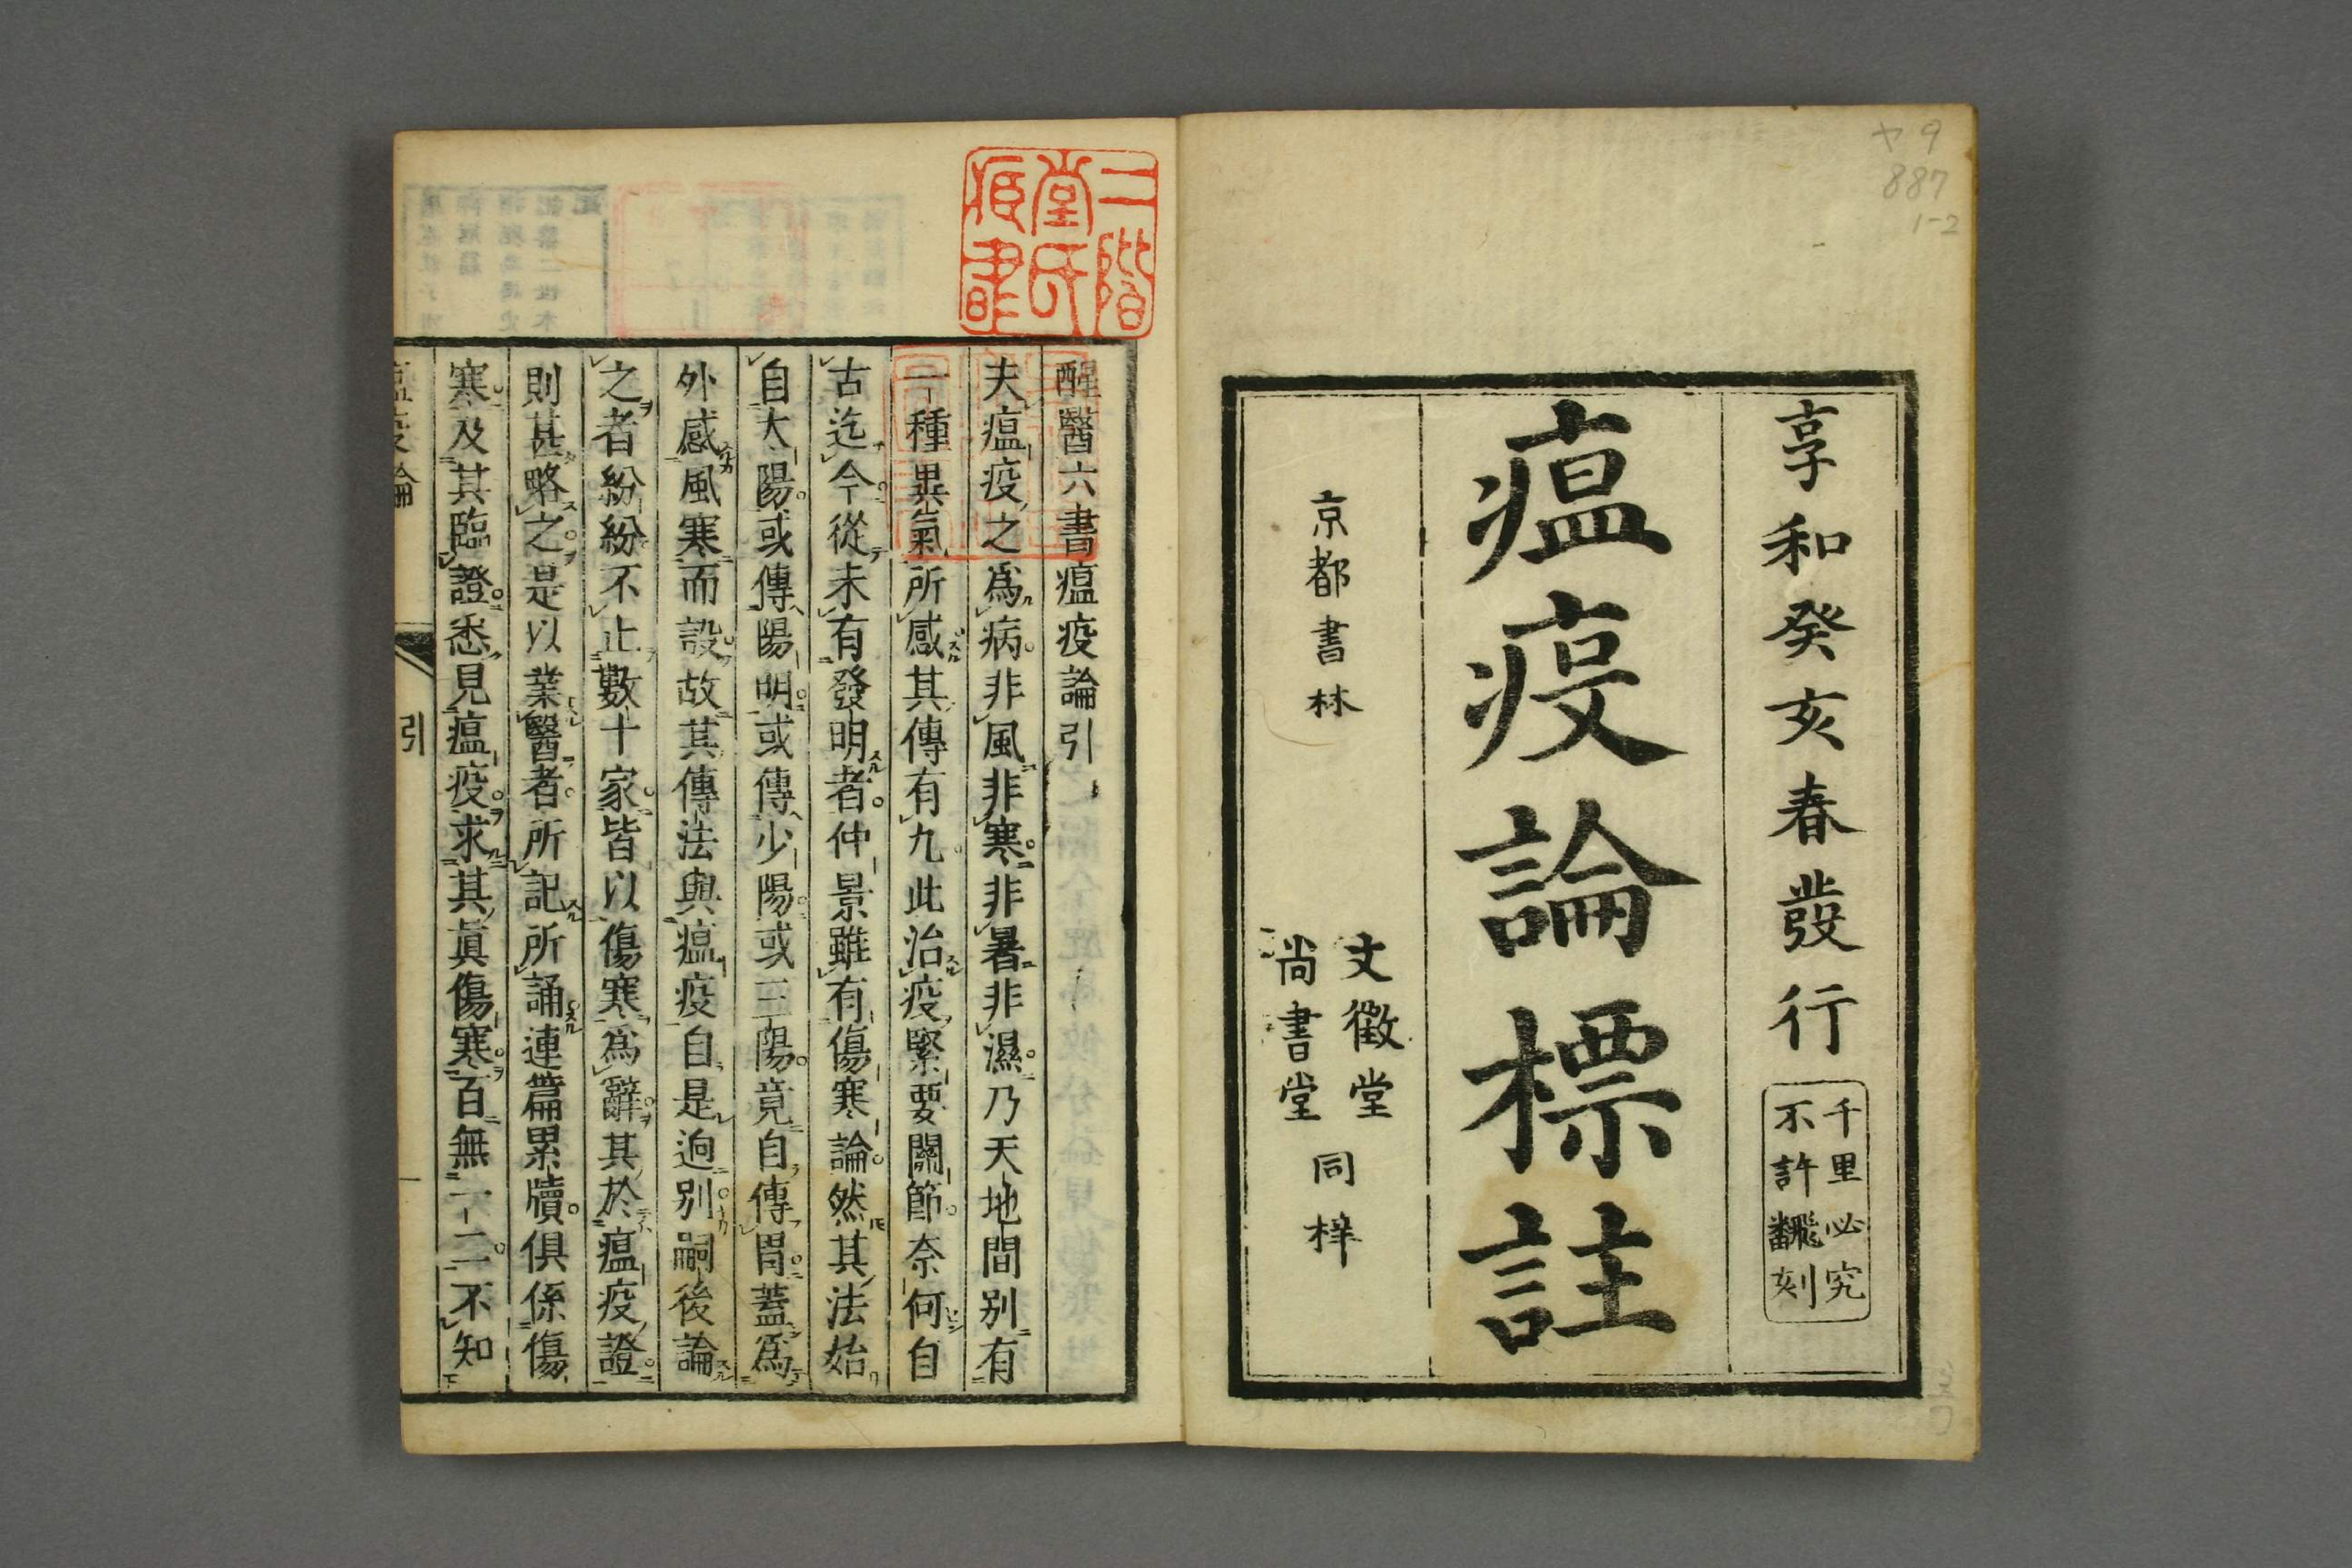 ヤ9
887
1-2
享和癸亥春發行
千里必究
不許飜刻
瘟疫論標註
京都書林
文徵堂
尚書堂
同梓
二階
堂氏
醒醫六書瘟疫論引
夫瘟疫之爲病非風非寒非暑非濕乃天地間別有
一種異氣所感其傳有九此治疫緊要關節奈何自
古迄今從未有發明者仲景雖有傷寒論然其法始
自太陽或傳陽明或傳少陽或三陽竟自傳胃蓋爲
外感風寒而設故其傳法與瘟疫自是迥別嗣後論
之者紛紛不止數十家皆以傷寒爲辭其於瘟疫證
則甚略之是以業醫者所記所誦連篇累牘俱係傷
寒及其臨證悉見瘟疫求其眞傷寒百無一二不知
瘟疫論
引